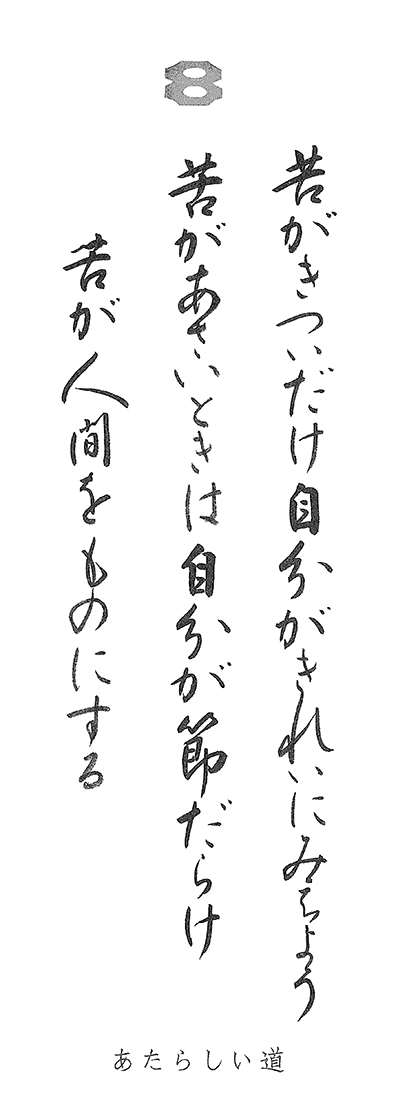 8
苦がきついだけ自分がきれいにみえよう
苦があさいときは自分が節だらけ
苦が人間をものにする
あたらしい道